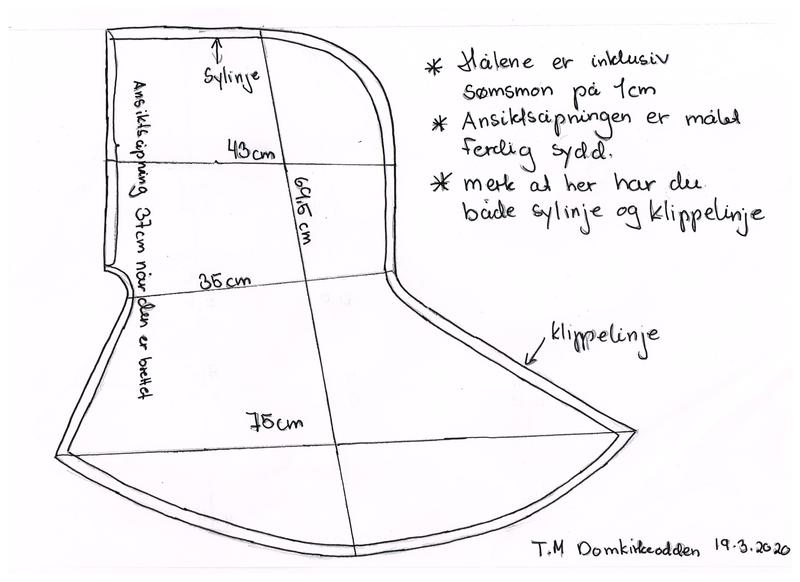 Sylinje
Ansiktsåpning 37cm når den er brettet
43cm
69,5 cm
35cm
75cm
klippelinje
* Målene er inklusiv
sømsmon på 1cm
* Ansiktsåpningen er målt
ferdig sydd.
* merk at her har du
både sylinje og klippelinje
T.M Domkirkeodden 19.3.2020